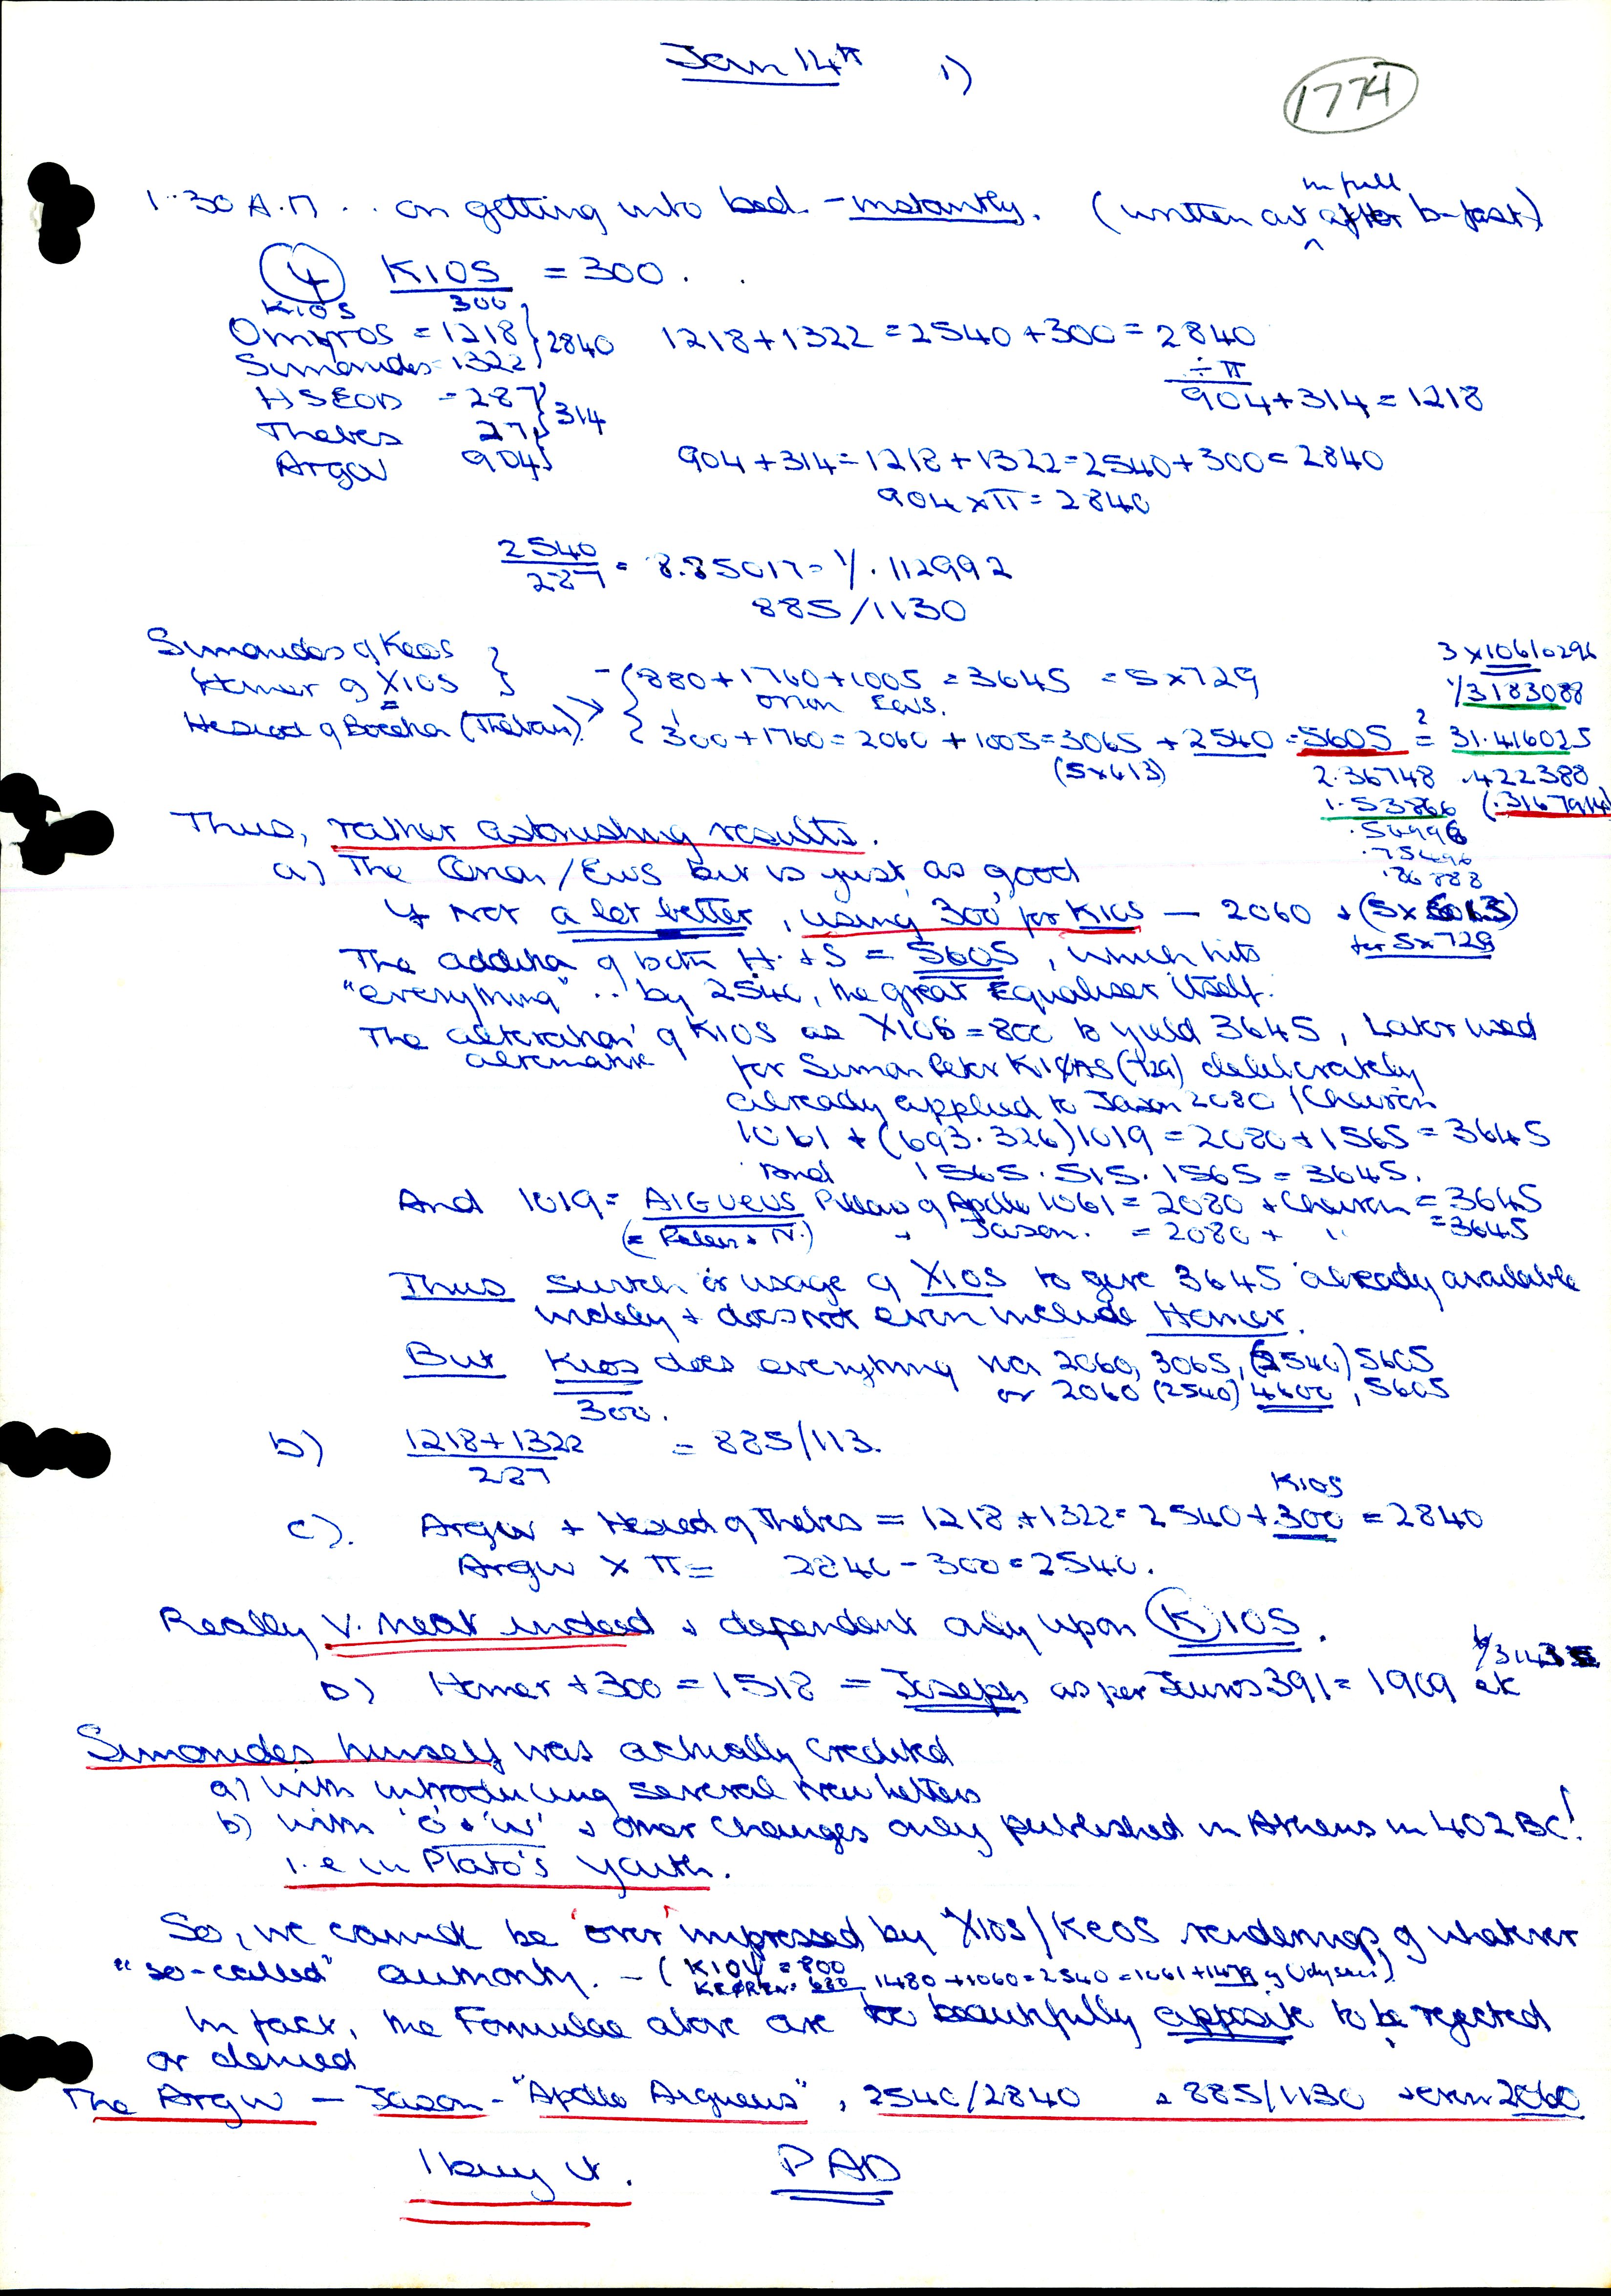 Jan 14th 1)
1774
1.30 A.M. .. on getting into bed - instantly. (written out in full after b-fast)
4 KIOS = 300.
KIOS 300
Omiros = 1218 } 2840 1218 + 1322 = 2540 + 300 = 2840
Simonides = 1322
÷ π
HSEOD = 287 } 314 904 + 314 = 1218
Thebes 27
Argw 904 904 + 314 = 1218 + 1322 = 2540 + 300 = 2840
904 x π = 2840
2540/287 = 8.85017 = 1/.112992
885/1130
Simonides of Keos
Homer of XIOS - { 880 + 1760 + 1005 = 3645 = 5 x 729
Orion Ews.
Hesiod of Boeotia (Theban) { 300 + 1760 = 2060 + 1005 = 3065 + 2540 = 5605 2 = 31.416025
(5x613)
3 x 10610296
1/3183088
2.36748 .422388
1.53866 (.3167914)
.56996
.75496
.86888
Thus, rather astonishing results.
a) The Orion/Ews bit is just as good
if not a lot better, using 300 for KIOS - 2060 + (5 x 613)
for 5x729
The addition of both H. + S = 5605, which hits
"everything" .. by 2540, the great Equaliser itself.
The alteration of KIOS as XIOS = 800 to yield 3645, later used
alternative for Simon Peter KIΦAS (729) deliberately
already applied to Jason 2080 / Cheiron
1061 + (693.326) 1019 = 2080 + 1565 = 3645
and 1565.515.1565 = 3645.
And 1019 = AIGUEUS Pillars of Apollo 1061 = 2080 + Cheiron = 3645
+ Jason. = 2080 + " = 3645
Thus switch or usage of XIOS to give 3645 already available
widely + does not even include Homer.
But Kios does everything via 2060, 3065, (2540) 5605
300. or 2060 (2540) 4600, 5605
b) 1218 + 1322 / 287 = 885/113.
c). Argw + Hesiod of Thebes = 1218 + 1322 = 2540 + 300 = 2840
KIOS
Argw x π = 2840 - 300 = 2540.
Really v. neat indeed + dependent only upon (K)IOS.
D) Homer + 300 = 1518 = Joseph as per Junos 391 = 1909 etc
Simonides himself was actually credited
a) with introducing several new letters
b) with 'ō' + 'w' + other changes only published in Athens in 402 BC!
i.e in Plato's youth.
So, we cannot be 'over' impressed by "XIOS/KEOS renderings, of whatever
"so-called" authority. - (KIOU = 800
1480 + 1060 = 2540 = 1061 + 1479 of Odysseus).
In fact, the Formulae above are too beautifully apposite to be rejected
or denied
The Argw - Jason - "Apollo Argueus", 2540/2840 + 885/1130 + even 2060
I buy it. PAD